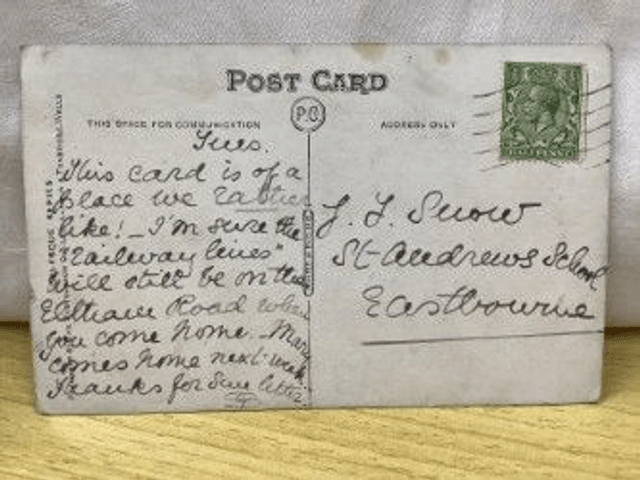 POST CARD
P.C
THIS SPACE FOR COMMUNICATION
ADDRESS ONLY
Tues.
This card is of a
place we rather
like! - I'm sure the
"railway lines"
will still be on the
Eltham Road when
you come home. - Mary
comes home next week.
Thanks for Sun letter
J. J. Snow
St Andrews School
Eastbourne